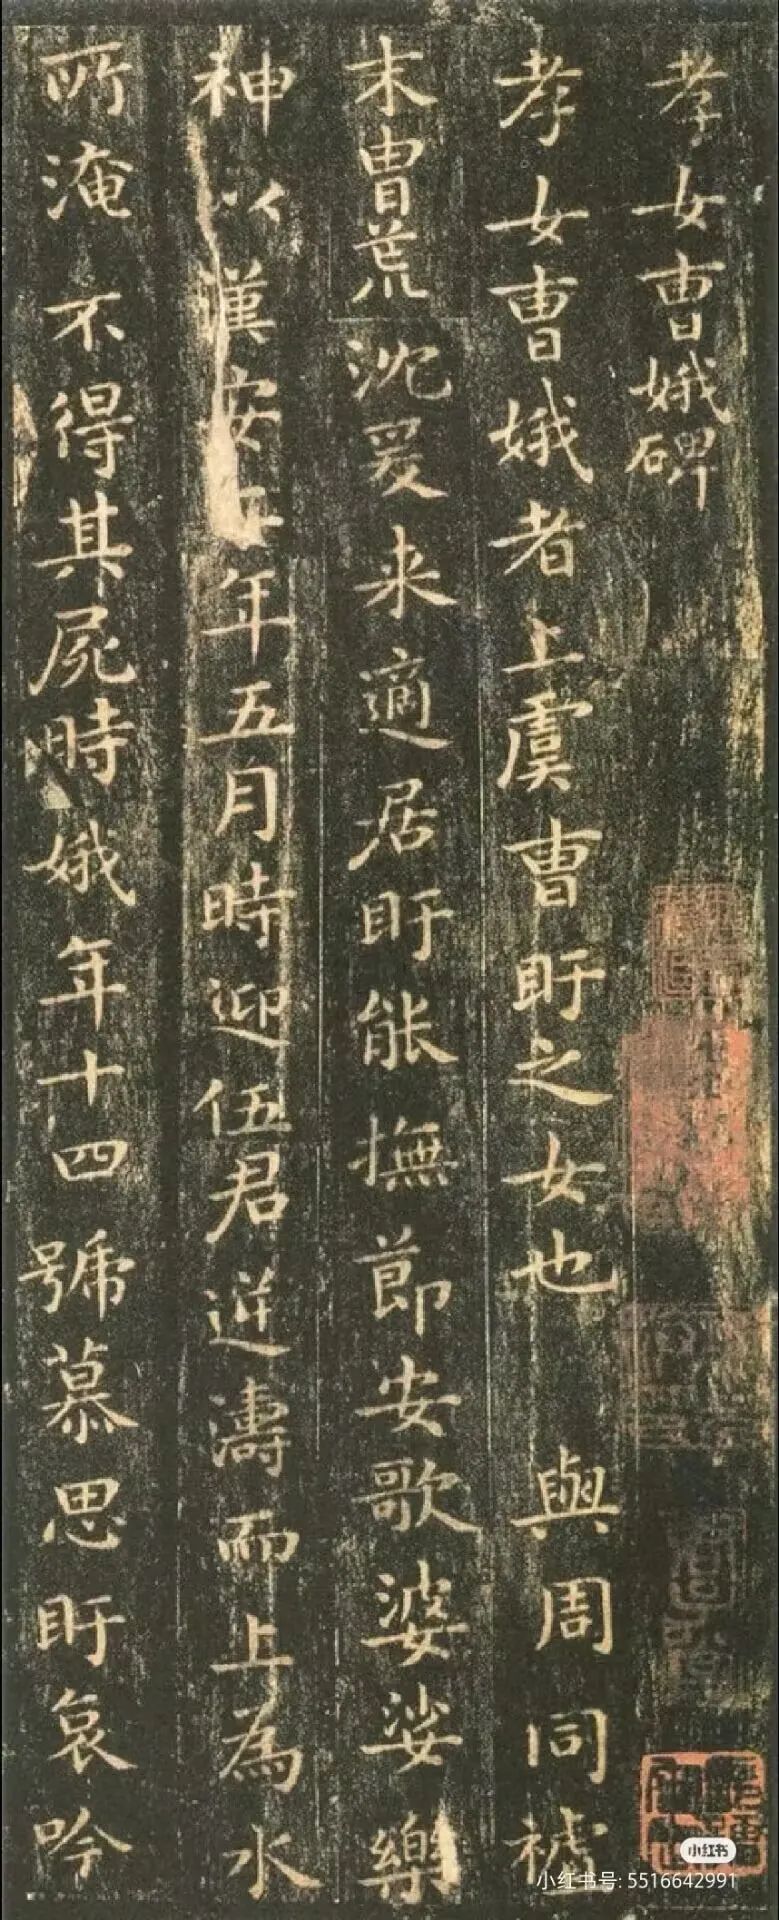 孝女曹娥碑
孝女曹娥者上虞曹盱之女也 與周同祖
末胄荒沈爰来適居盱能撫節安歌婆娑樂
神以漢安二年五月時迎伍君逆濤而上為水
所淹不得其屍時娥年十四號慕思盱哀吟
小红书
小红书号: 5516642991